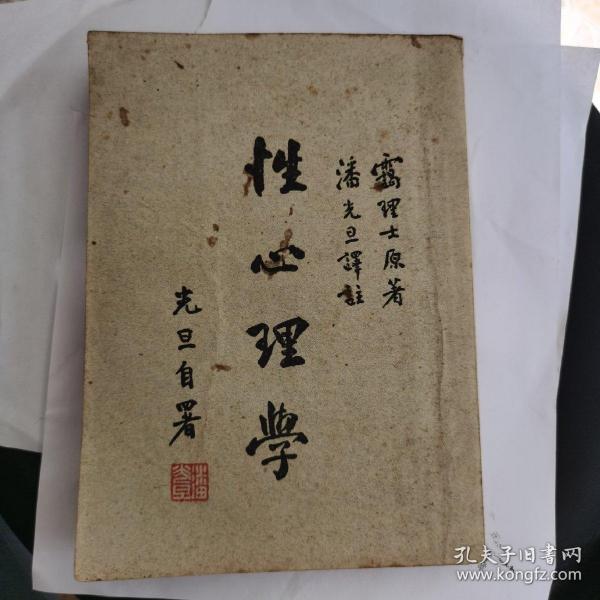 靄理士原著
潘光旦譯註
性心理學
光旦自署
孔夫子旧书网
www.kongfz.com